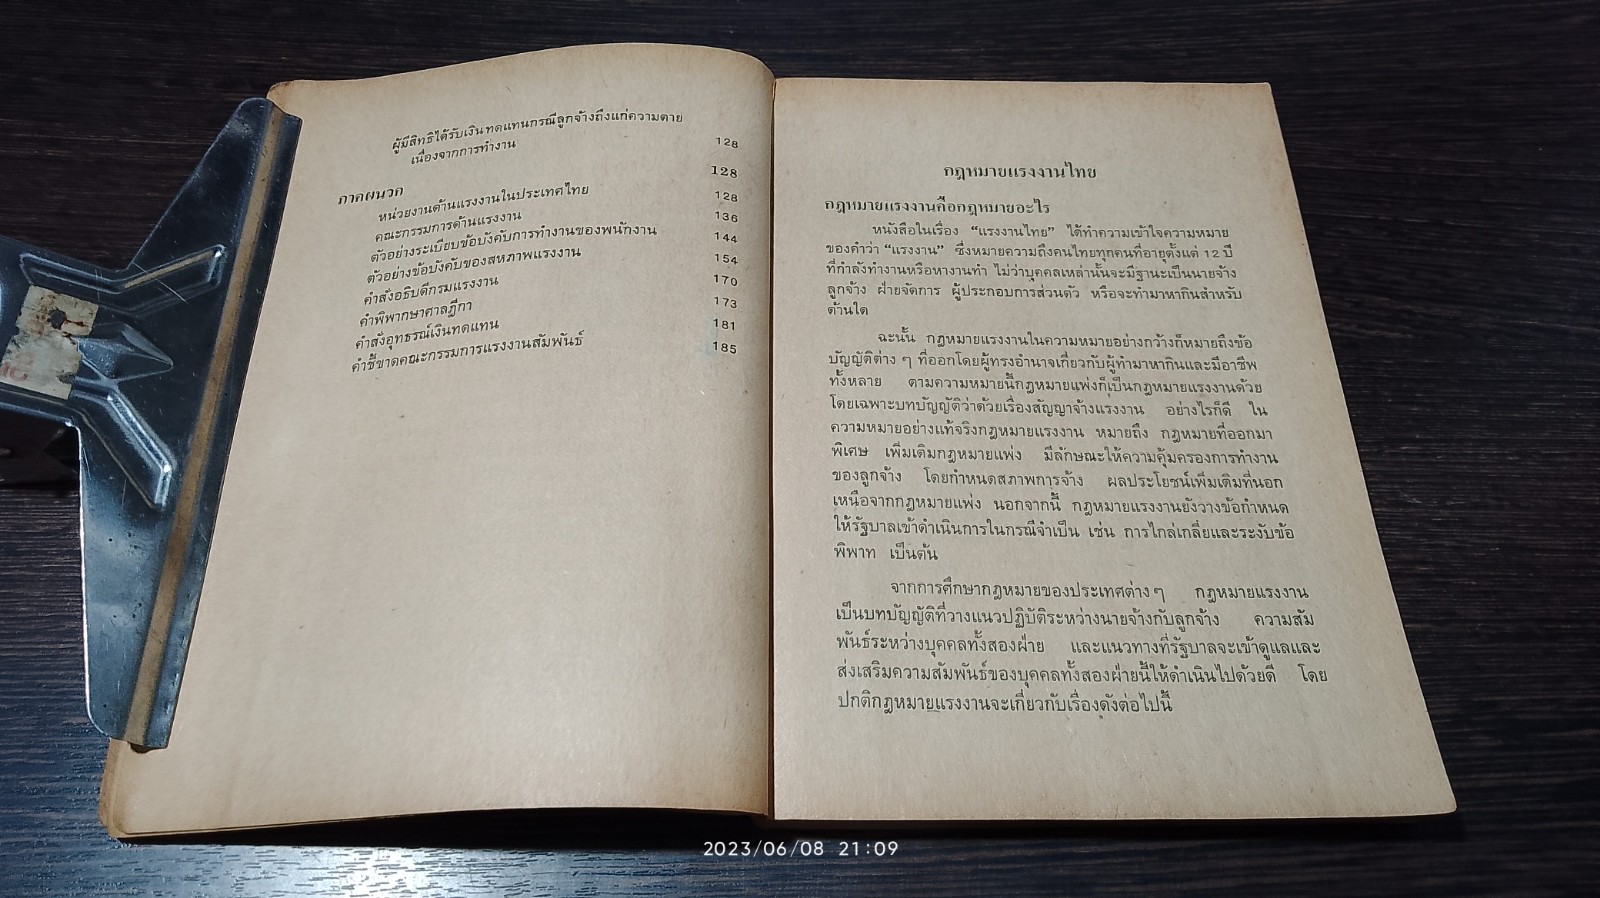 ผู้มีสิทธิได้รับเงินทดแทนกรณีลูกจ้างถึงแก่ความตาย
เนื่องจากการทำงาน 128
ภาคผนวก 128
หน่วยงานด้านแรงงานในประเทศไทย 128
คณะกรรมการด้านแรงงาน 136
ตัวอย่างระเบียบข้อบังคับการทำงานของพนักงาน 144
ตัวอย่างข้อบังคับของสหภาพแรงงาน 154
คำสั่งอธิบดีกรมแรงงาน 170
คำพิพากษาศาลฎีกา 173
คำสั่งอุทธรณ์เงินทดแทน 181
คำชี้ขาดคณะกรรมการแรงงานสัมพันธ์ 185
กฎหมายแรงงานไทย
กฎหมายแรงงานคือกฎหมายอะไร
หนังสือในเรื่อง “แรงงานไทย” ได้ทำความเข้าใจความหมาย
ของคำว่า “แรงงาน” ซึ่งหมายความถึงคนไทยทุกคนที่อายุตั้งแต่ 12 ปี
ที่กำลังทำงานหรือหางานทำ ไม่ว่าบุคคลเหล่านั้นจะมีฐานะเป็นนายจ้าง
ลูกจ้าง ฝ่ายจัดการ ผู้ประกอบการส่วนตัว หรือจะทำมาหากินสำหรับ
ด้านใด
ฉะนั้น กฎหมายแรงงานในความหมายอย่างกว้างก็หมายถึงข้อ
บัญญัติต่าง ๆ ที่ออกโดยผู้ทรงอำนาจเกี่ยวกับผู้ทำมาหากินและมีอาชีพ
ทั้งหลาย ตามความหมายนี้กฎหมายแพ่งก็เป็นกฎหมายแรงงานด้วย
โดยเฉพาะบทบัญญัติว่าด้วยเรื่องสัญญาจ้างแรงงาน อย่างไรก็ดี ใน
ความหมายอย่างแท้จริงกฎหมายแรงงาน หมายถึง กฎหมายที่ออกมา
พิเศษ เพิ่มเติมกฎหมายแพ่ง มีลักษณะให้ความคุ้มครองการทำงาน
ของลูกจ้าง โดยกำหนดสภาพการจ้าง ผลประโยชน์เพิ่มเติมที่นอก
เหนือจากกฎหมายแพ่ง นอกจากนี้ กฎหมายแรงงานยังวางข้อกำหนด
ให้รัฐบาลเข้าดำเนินการในกรณีจำเป็น เช่น การไกล่เกลี่ยและระงับข้อ
พิพาท เป็นต้น
จากการศึกษากฎหมายของประเทศต่าง ๆ กฎหมายแรงงาน
เป็นบทบัญญัติที่วางแนวปฏิบัติระหว่างนายจ้างกับลูกจ้าง ความสัม
พันธ์ระหว่างบุคคลทั้งสองฝ่าย และแนวทางที่รัฐบาลจะเข้าดูแลและ
ส่งเสริมความสัมพันธ์ของบุคคลทั้งสองฝ่ายนี้ให้ดำเนินไปด้วยดี โดย
ปกติกฎหมายแรงงานจะเกี่ยวกับเรื่องดังต่อไปนี้
2023/06/08 21:09